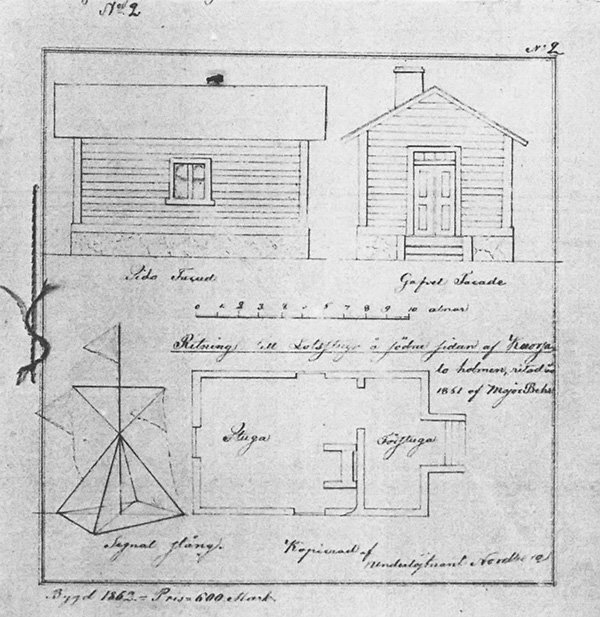 No 2
No 2
Sido Facad
Gafvel Facade
0 1 2 3 4 5 6 7 8 9 10 alnar
Ritning till Lotsstuga å södra sidan af
to holmen, ritad år
1861 af Major Behr
Stuga
Förstuga
Segnal stång.
Kopierad af
underlöjtnant
Bygd 1862 = Pris = 600 Mark.